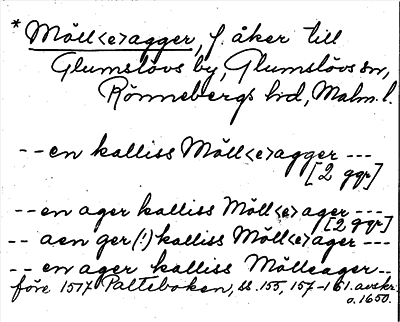 * Möll<e>agger, f. åker till
Glumslövs by, Glumslövs sn,
Rönnebergs hd, Malm. l.
-- en kalliss Möll<e>agger ---
[2 ggr]
-- en ager kalliss Möll<e>ager ---
[2 ggr]
-- aen ger (!) kalliss Möll<e>ager ---
-- en ager kalliss Mölleager --
före 1517 Palteboken, ss. 155, 157-161. avskr.
o. 1650.